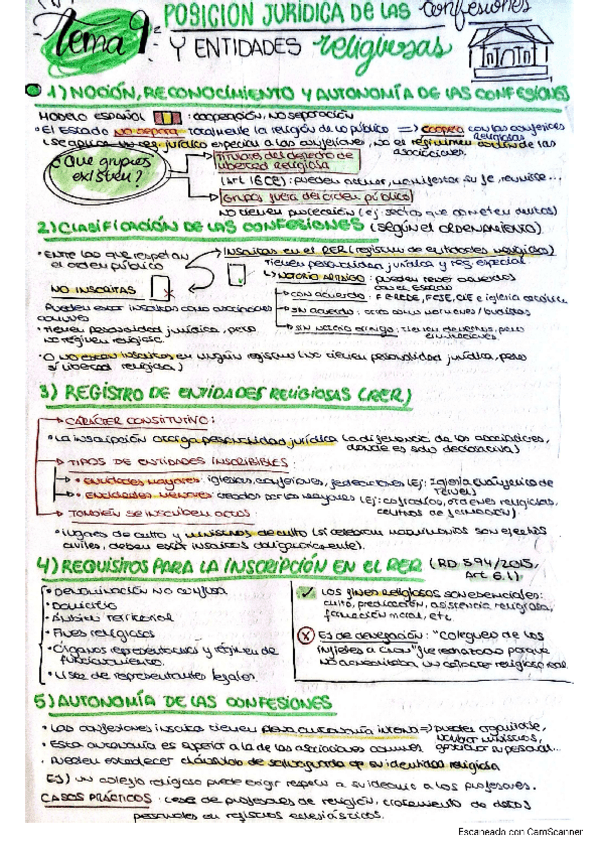 Tema 9
POSICIÓN JURÍDICA DE LAS confesiones
Y ENTIDADES religiosas
1) NOCIÓN, RECONOCIMIENTO Y AUTONOMÍA DE LAS CONFESIONES
MODELO ESPAÑOL : cooperación, no separación
• El Estado no separa totalmente la religión de lo público => coopera con las confesiones religiosas
Se aplica un reg. jurídico especial a las confesiones, no el régimen común de las asociaciones.
¿Que grupos existen?
Titulares del derecho de libertad religiosa
(Art 16 CE): pueden actuar, manifestar su fe, reunirse...
Grupos fuera del orden público
No tienen protección (ej: sectas que cometen delitos)
2) CLASIFICACIÓN DE LAS CONFESIONES (según el ORDENAMIENTO)
• Entre las que respetan el orden público
Inscritas en el RER (registro de entidades religiosas)
Tienen personalidad jurídica y reg. especial
NOTORIO ARRAIGO: pueden tener acuerdos con el Estado
CON ACUERDO: FEREDE, FCJE, CIE e iglesia católica
SIN ACUERDO: otros como mormones / budistas
SIN NOTORIO ARRAIGO: tienen derechos, pero limitaciones
NO INSCRITAS
Pueden estar inscritas como asociaciones comunes
• Tienen personalidad jurídica, pero no régimen religioso.
• O no están inscritas en ningún registro (no tienen personalidad jurídica, pero sí libertad religiosa)
3) REGISTRO DE ENTIDADES RELIGIOSAS (RER)
CARÁCTER CONSTITUTIVO:
• La inscripción otorga personalidad jurídica (a diferencia de las asociaciones, donde es solo declarativa)
TIPOS DE ENTIDADES INSCRIBIBLES:
• entidades mayores: iglesias, confesiones, federaciones (Ej: Iglesia Evangélica de
• entidades menores: creadas por las mayores (Ej: cofradías, órdenes religiosas, centros de formación)
TAMBIÉN SE INSCRIBEN ACTOS:
• lugares de culto y ministros de culto (si celebran matrimonios con efectos civiles, deben estar inscritos obligatoriamente).
4) REQUISITOS PARA LA INSCRIPCIÓN EN EL RER (RD 594/2015, Art 6.1)
• Denominación no confusa
• Domicilio
• Ámbito territorial
• Fines religiosos
• Órganos representativos y régimen de funcionamiento.
• Lista de representantes legales.
Los fines religiosos son esenciales: culto, predicación, asistencia religiosa, formación moral, etc
Ej de denegación: "
" fue rechazado porque no acreditaba un carácter religioso real
5) AUTONOMÍA DE LAS CONFESIONES
• Las confesiones inscritas tienen plena autonomía interna => pueden organizarse, nombrar ministros, gestionar su personal...
• Esta autonomía es superior a la de las asociaciones comunes
• Pueden establecer cláusulas de salvaguarda de su identidad religiosa
EJ) un colegio religioso puede exigir respeto a su ideario a los profesores.
CASOS PRÁCTICOS: cese de profesores de religión, tratamiento de datos personales en registros eclesiásticos.
Escaneado con CamScanner